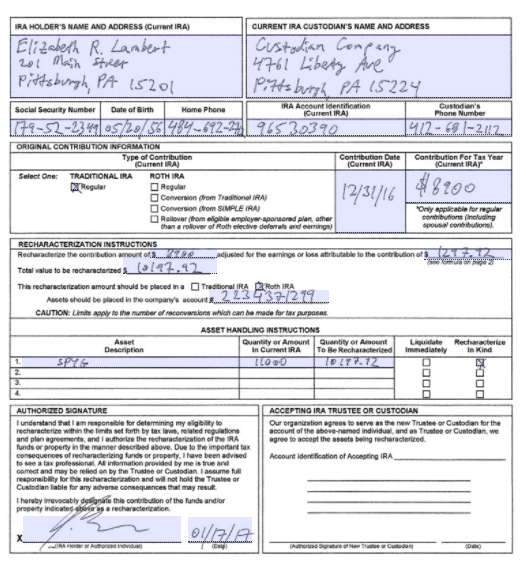 IRA HOLDER'S NAME AND ADDRESS (Current IRA)
Elizabeth R. Lambert
201 Main Street
Pittsburgh, PA 15201
CURRENT IRA CUSTODIAN'S NAME AND ADDRESS
Custodian Company
4761 Liberty Ave
Pittsburg, PA 15224
Social Security Number Date of Birth Home Phone
179-52-2349 05/20/56 484-692-
IRA Account Identification
(Current IRA)
96530390
Custodian's
Phone Number
412-681-2112
ORIGINAL CONTRIBUTION INFORMATION
Type of Contribution
(Current IRA)
Select One: TRADITIONAL IRA ROTH IRA
Regular Regular
Conversion (from Traditional IRA)
Conversion (from SIMPLE IRA)
Rollover (from eligible employer-sponsored plan, other
than a rollover of Roth elective deferrals and earnings)
Contribution Date
(Current IRA)
12/31/16
Contribution For Tax Year
(Current IRA)*
$8900
*Only applicable for regular
contributions (including
spousal contributions).
RECHARACTERIZATION INSTRUCTIONS
Recharacterize the contribution amount of $ 8900 adjusted for the earnings or loss attributable to the contribution of $ 1297.92
(see formula on page 2)
Total value to be recharacterized $ 10197.92
This recharacterization amount should be placed in a Traditional IRA Roth IRA
Assets should be placed in the company's account # 223437/299
CAUTION: Limits apply to the number of reconversions which can be made for tax purposes.
ASSET HANDLING INSTRUCTIONS
Asset
Description
Quantity or Amount
In Current IRA
Quantity or Amount
To Be Recharacterized
Liquidate
Immediately
Recharacterize
In Kind
1. SPYG 11000 10197.92
2.
3.
4.
AUTHORIZED SIGNATURE
I understand that I am responsible for determining my eligibility to
recharacterize within the limits set forth by tax laws, related regulations
and plan agreements, and I authorize the recharacterization of the IRA
funds or property in the manner described above. Due to the important tax
consequences of recharacterizing funds or property, I have been advised
to see a tax professional. All information provided by me is true and
correct and may be relied on by the Trustee or Custodian. I assume full
responsibility for this recharacterization and will not hold the Trustee or
Custodian liable for any adverse consequences that may result.
I hereby irrevocably designate this contribution of the funds and/or
property indicated above as a recharacterization.
X 01/17/17
(IRA Holder or Authorized Individual) (Date)
ACCEPTING IRA TRUSTEE OR CUSTODIAN
Our organization agrees to serve as the new Trustee or Custodian for the
account of the above-named individual, and as Trustee or Custodian, we
agree to accept the assets being recharacterized.
Account Identification of Accepting IRA
(Authorized Signature of New Trustee or Custodian) (Date)